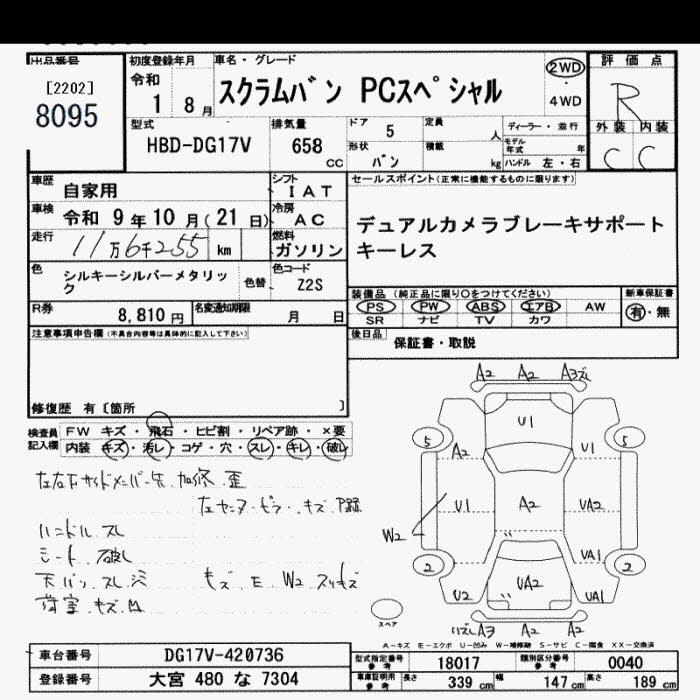 出品番号
[2202]
8095
初度登録年月
令和
1 8月
車名・グレード
スクラムバン PCスペシャル
2WD
・
4WD
評価点
R
外装 内装
C C
型式
HBD-DG17V
排気量
658
CC
ドア 5
形状 バン
定員 人
積載 kg
ディーラー・並行
モデル年式 年
ハンドル 左・右
車歴 自家用
シフト IAT
車検 令和 9年10月(21日)
冷房 AC
走行 11万6千255 km
燃料 ガソリン
セールスポイント(正常に機能するものに限ります)
デュアルカメラブレーキサポート
キーレス
色 シルキーシルバーメタリック
色替
色コード Z2S
R券 8,810円
名変通知期限 月 日
装備品(純正品に限り○をつけてください)
PS PW ABS エアB AW
SR ナビ TV カワ
新車保証書
有・無
後日品 保証書・取説
注意事項申告欄(不具合内容等は具体的に記入して下さい)
修復歴 有〔箇所 〕
検査員記入欄
FW キズ・飛石・ヒビ割・リペア跡・×要
内装 キズ・汚レ・コゲ・穴・スレ・キレ・破レ
ハンドル スレ
シート 破レ
A2 A2 A3ズレ
U1
5 5
A2 U1
U1 A2 UA2
W2
UA1
2 2
U2 UA2 UA1
A3 A2 A2
スペア
A-キズ E-エクボ U-凹み W-補修跡 S-サビ C-腐食 XX-交換済
車台番号 DG17V-420736
登録番号 大宮 480 な 7304
型式指定番号 参考 18017
類別区分番号 参考 0040
車車証明用 参考 長さ 339cm 幅 147cm 高さ 189cm